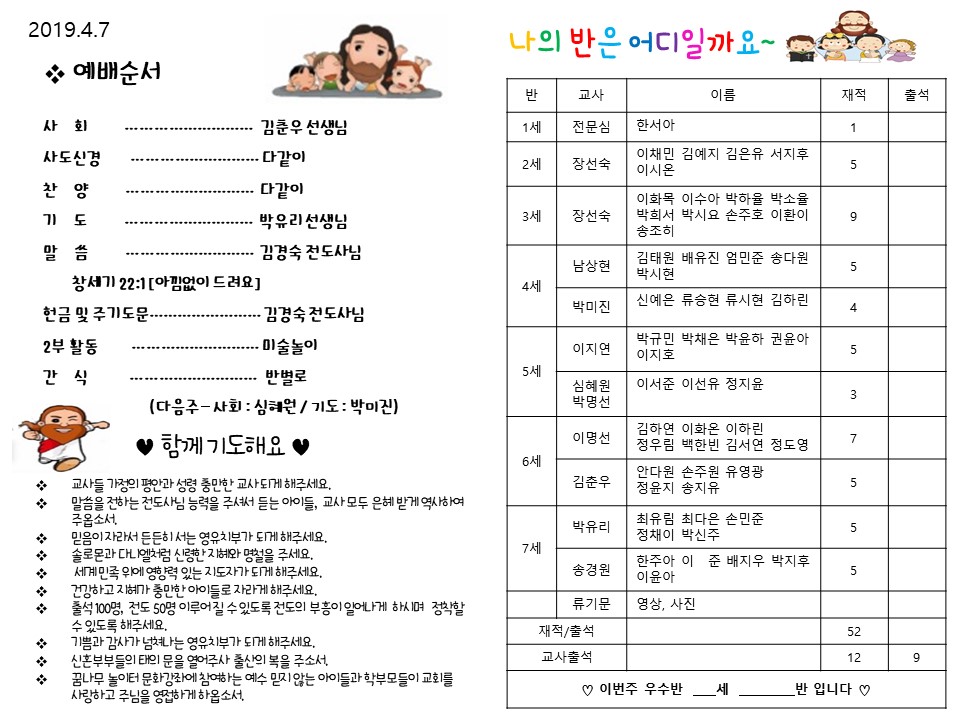 2019.4.7
❖ 예배순서
사 회 --------------------------- 김춘우 선생님
사도신경 --------------------------- 다같이
찬 양 --------------------------- 다같이
기 도 --------------------------- 박유리 선생님
말 씀 --------------------------- 김경숙 전도사님
창세기 22:1 [아낌없이 드려요]
헌금 및 주기도문------------------------ 김경숙 전도사님
2부 활동 --------------------------- 미술놀이
간 식 --------------------------- 반별로
(다음주 – 사회 : 심혜원 / 기도 : 박미진)
♥ 함께 기도해요 ♥
❖ 교사들 가정의 평안과 성령 충만한 교사 되게 해주세요.
❖ 말씀을 전하는 전도사님 능력을 주셔서 듣는 아이들, 교사 모두 은혜 받게 역사하여
주옵소서.
❖ 믿음이 자라서 든든히 서는 영유치부가 되게 해주세요.
❖ 솔로몬과 다니엘처럼 신령한 지혜와 명철을 주세요.
❖ 세계 민족 위에 영향력 있는 지도자가 되게 해주세요.
❖ 건강하고 지혜가 충만한 아이들로 자라게 해주세요.
❖ 출석 100명, 전도 50명 이루어 질 수 있도록 전도의 부흥이 일어나게 하시며 정착할
수 있도록 해주세요.
❖ 기쁨과 감사가 넘쳐나는 영유치부가 되게 해주세요.
❖ 신혼부부들의 태의 문을 열어주사 출산의 복을 주소서.
❖ 꿈나무 놀이터 문화강좌에 참여하는 예수 믿지 않는 아이들과 학부모들이 교회를
사랑하고 주님을 영접하게 하옵소서.
나의 반은 어디일까요~
반 교사 이름 재적 출석
1세 전문심 한서아 1
2세 장선숙 이채민 김예지 김은유 서지후 5
이시온
3세 장선숙 이화목 이수아 박하율 박소율 9
박희서 박시요 손주호 이환이
송조히
4세 남상현 김태원 배유진 엄민준 송다원 5
박시현
박미진 신예은 류승현 류시현 김하린 4
5세 이지연 박규민 박채은 박윤하 권윤아 5
이지호
심혜원 이서준 이선유 정지윤 3
박명선
6세 이명선 김하연 이화온 이하린 7
정우림 백한빈 김서연 정도영
김춘우 안다원 손주원 유영광 5
정윤지 송지유
7세 박유리 최유림 최다은 손민준 5
정채이 박신주
송경원 한주아 이 준 배지우 박지후 5
이윤아
류기문 영상, 사진
재적/출석 52
교사출석 12 9
♡ 이번주 우수반 ___세 ________반 입니다 ♡